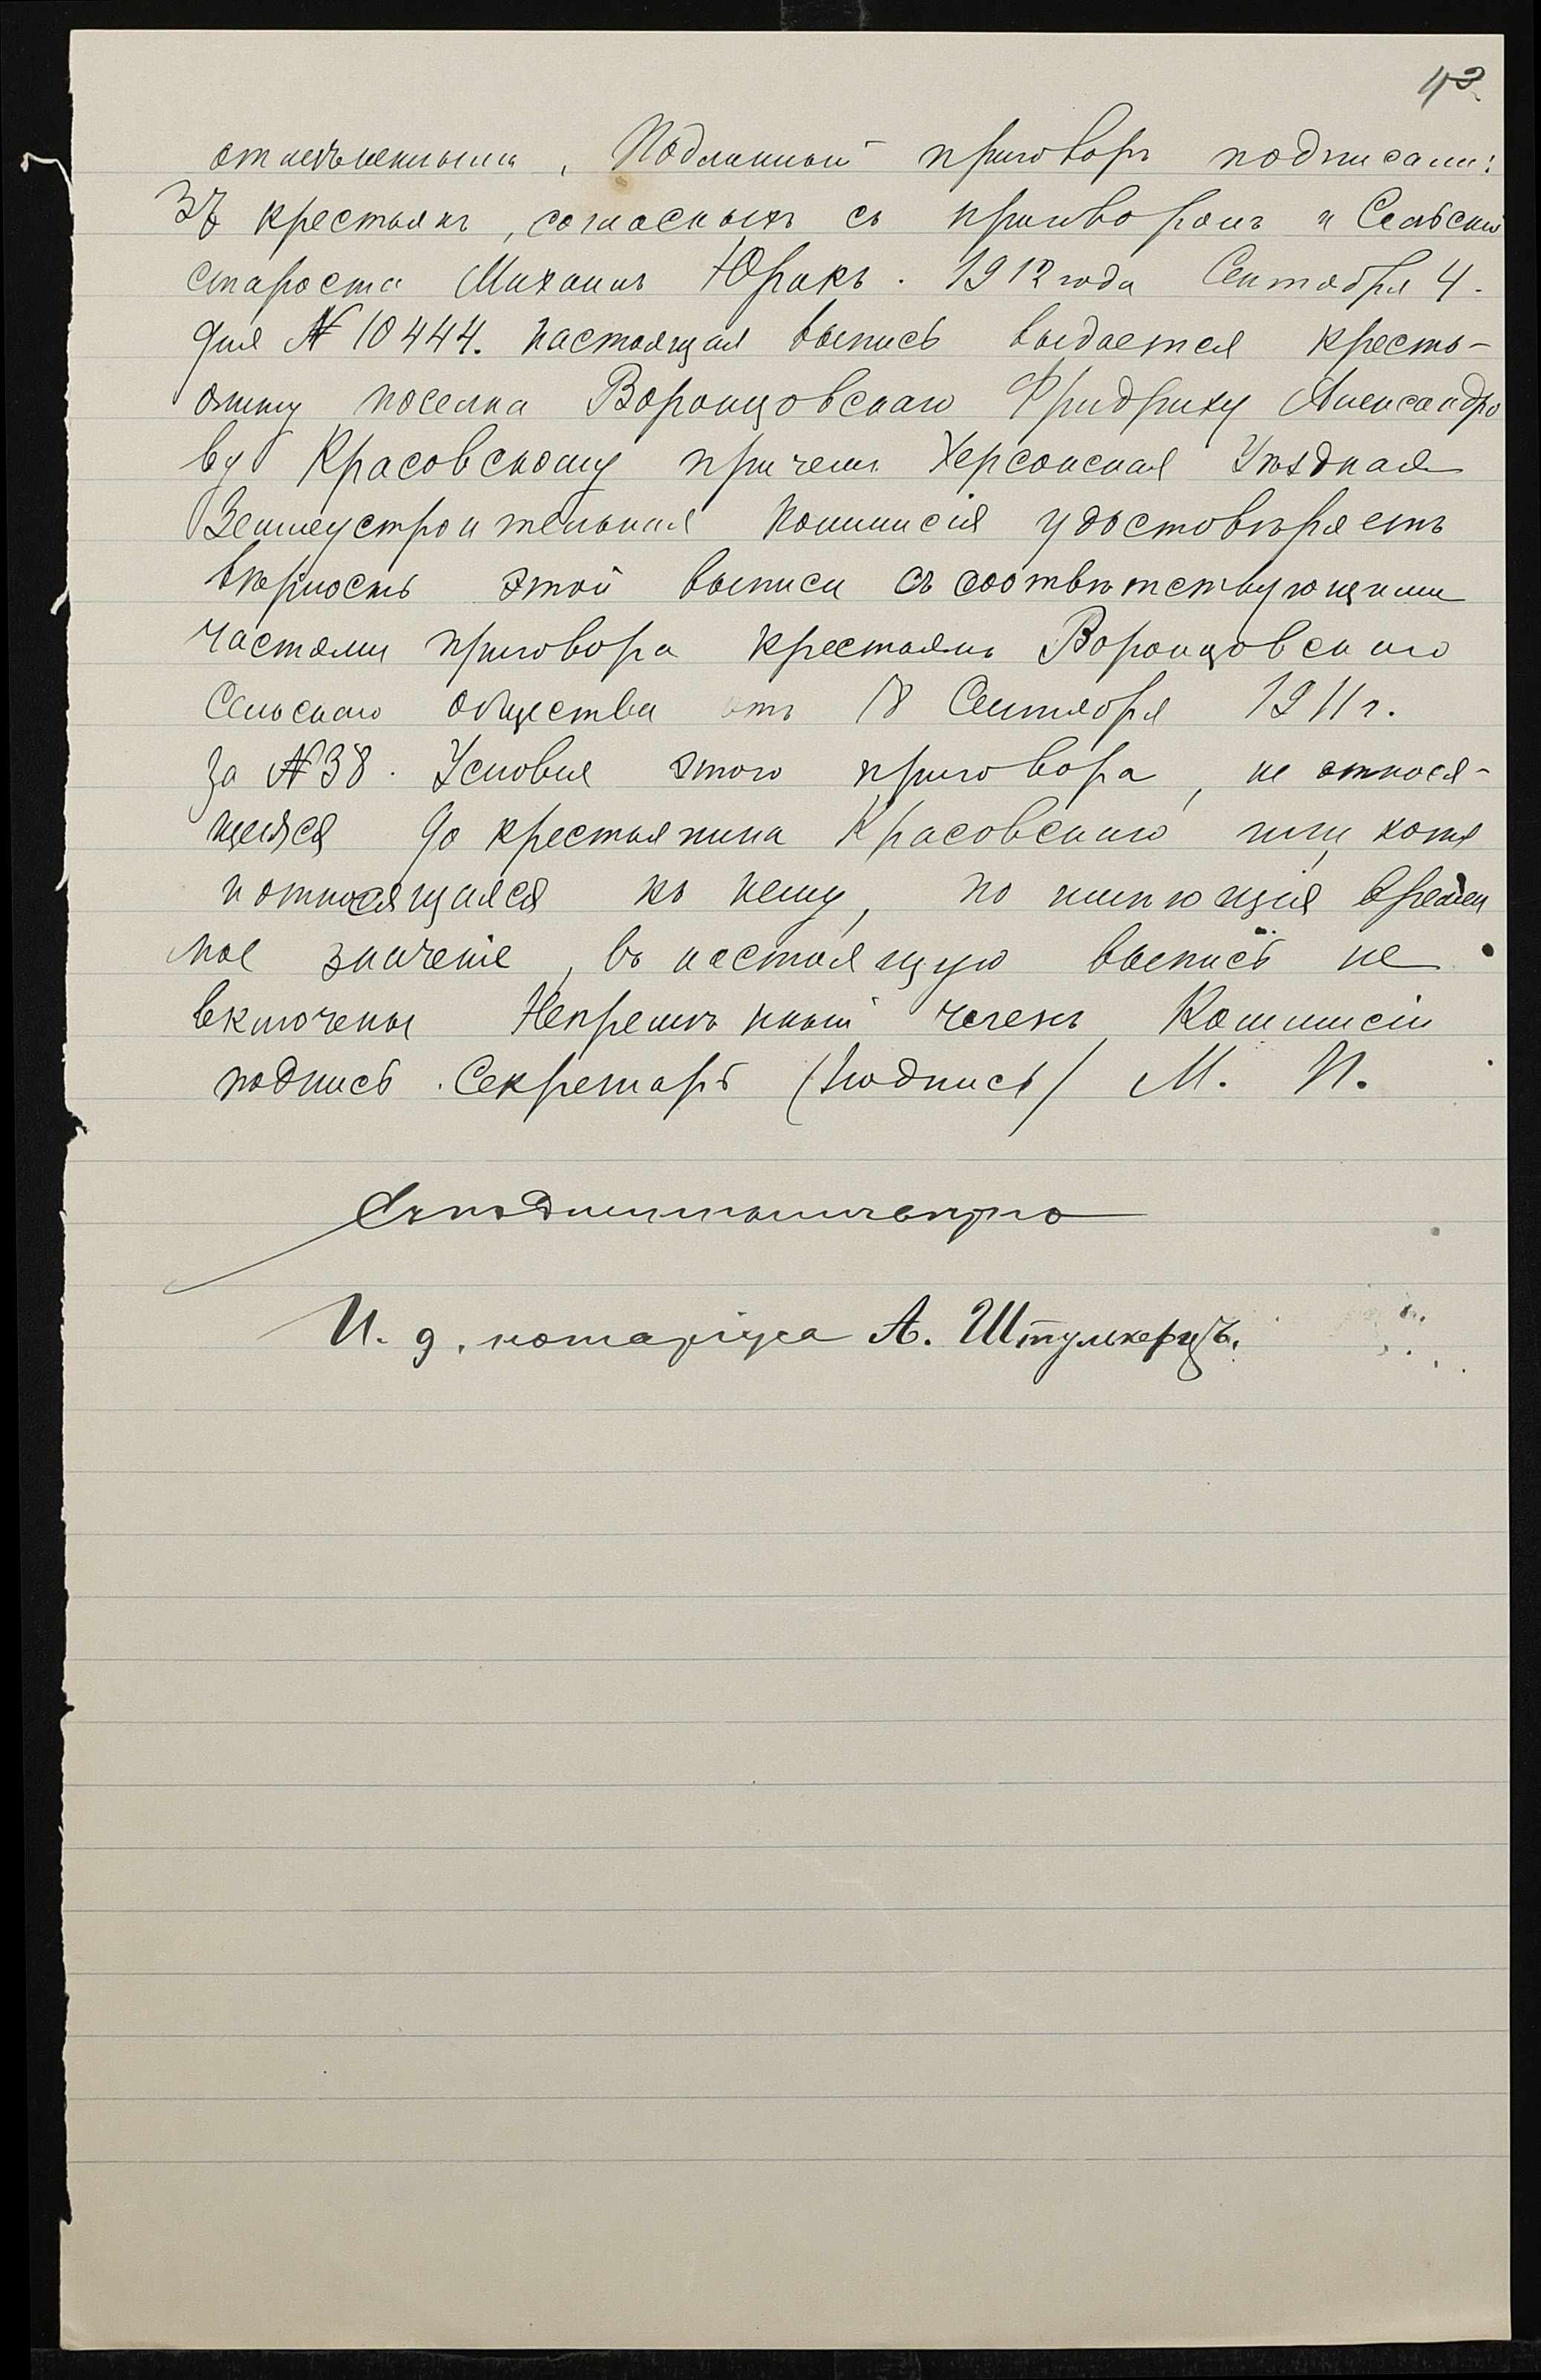 43
отмѣченными, Подлинный приговоръ подписали:
37 крестьянъ, согласныхъ съ приговоромъ и Сельскій
староста Михаилъ Юракъ. 1912 года Сентября 4.
дня № 10444. настоящая выпись выдается кресть-
янину поселка Воронцовскаго Фридриху Александро
ву Красовскому причемъ Херсонская Уѣздная
Землеустроительная Коммисія удостовѣряетъ
вѣрность этой выписи съ соотвѣтствующими
частями приговора крестьянъ Воронцовскаго
Сельскаго общества отъ 18 Сентября 1911 г.
за № 38. Условія этого приговора, не относя-
щеяся до крестьянина Красовскаго или, хотя
и относящіяся къ нему, но имѣющія времен
ное значеніе, въ настоящую выпись не
включены Непремѣнный членъ Коммисіи
подпись. Секретарь (подпись) М. П.
И. д. нотаріуса А.